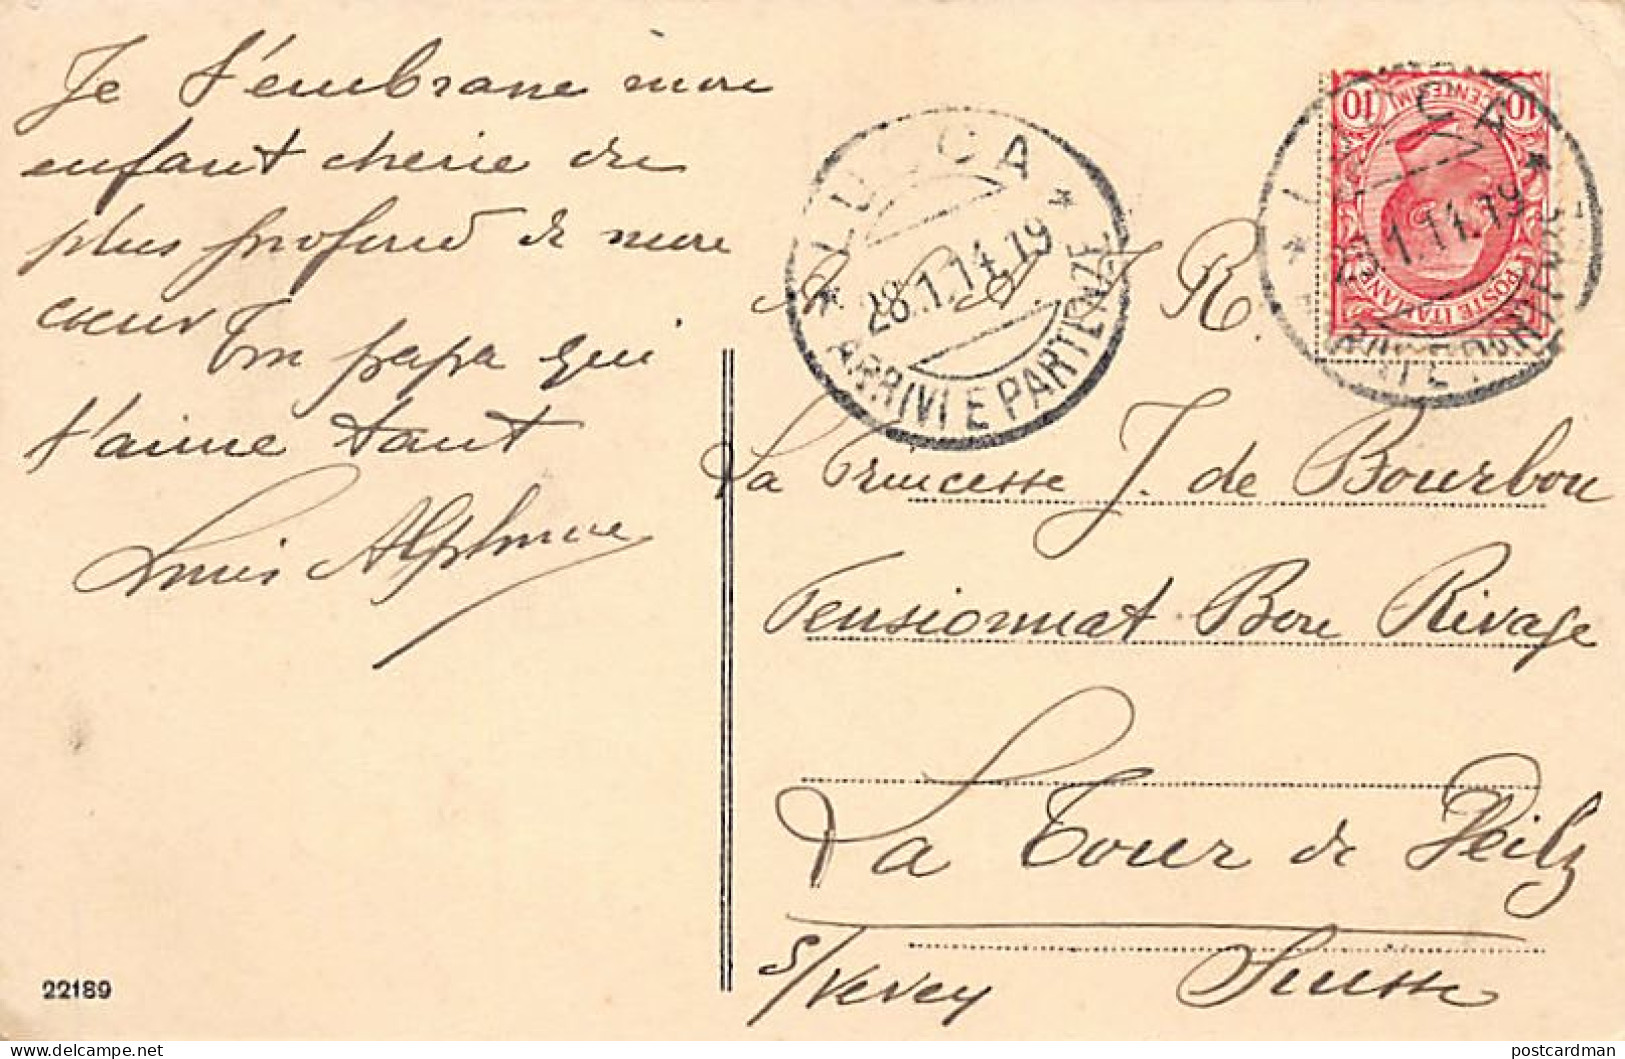 Je t'embrasse mon
enfant cherie du
plus profond de mon
cœur Ton papa qui
t'aime tant
Louis Alphonse
22189
LUCCA
28.1.14.19
ARRIVI E PARTENZE
10 CENTESIMI 10
POSTE ITALIANE
LUCCA
1.14.19
ARRIVI E PARTENZE
A S A R.
La Princesse J. de Bourbon
Pensionnat Bon Rivage
La Tour de Peilz
s/Vevey Suisse
postcardman